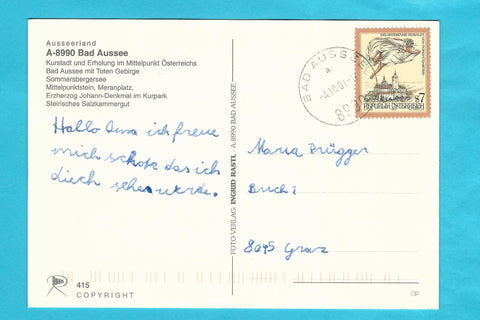 Ausseerland
A-8990 Bad Aussee
Kurstadt und Erholung im Mittelpunkt Österreichs
Bad Aussee mit Toten Gebirge
Sommersbergersee
Mittelpunktstein, Meranplatz,
Erzherzog Johann-Denkmal im Kurpark
Steirisches Salzkammergut
Hallo Oma ich freue
mich schok das ich
diech sehen werde.
415
COPYRIGHT
FOTO-VERLAG: INGRID RASTL A-8990 BAD AUSSEE
BAD AUSSEE
a
8990
7
REPUBLIK ÖSTERREICH
Maria Brügger
8045 Graz
CP